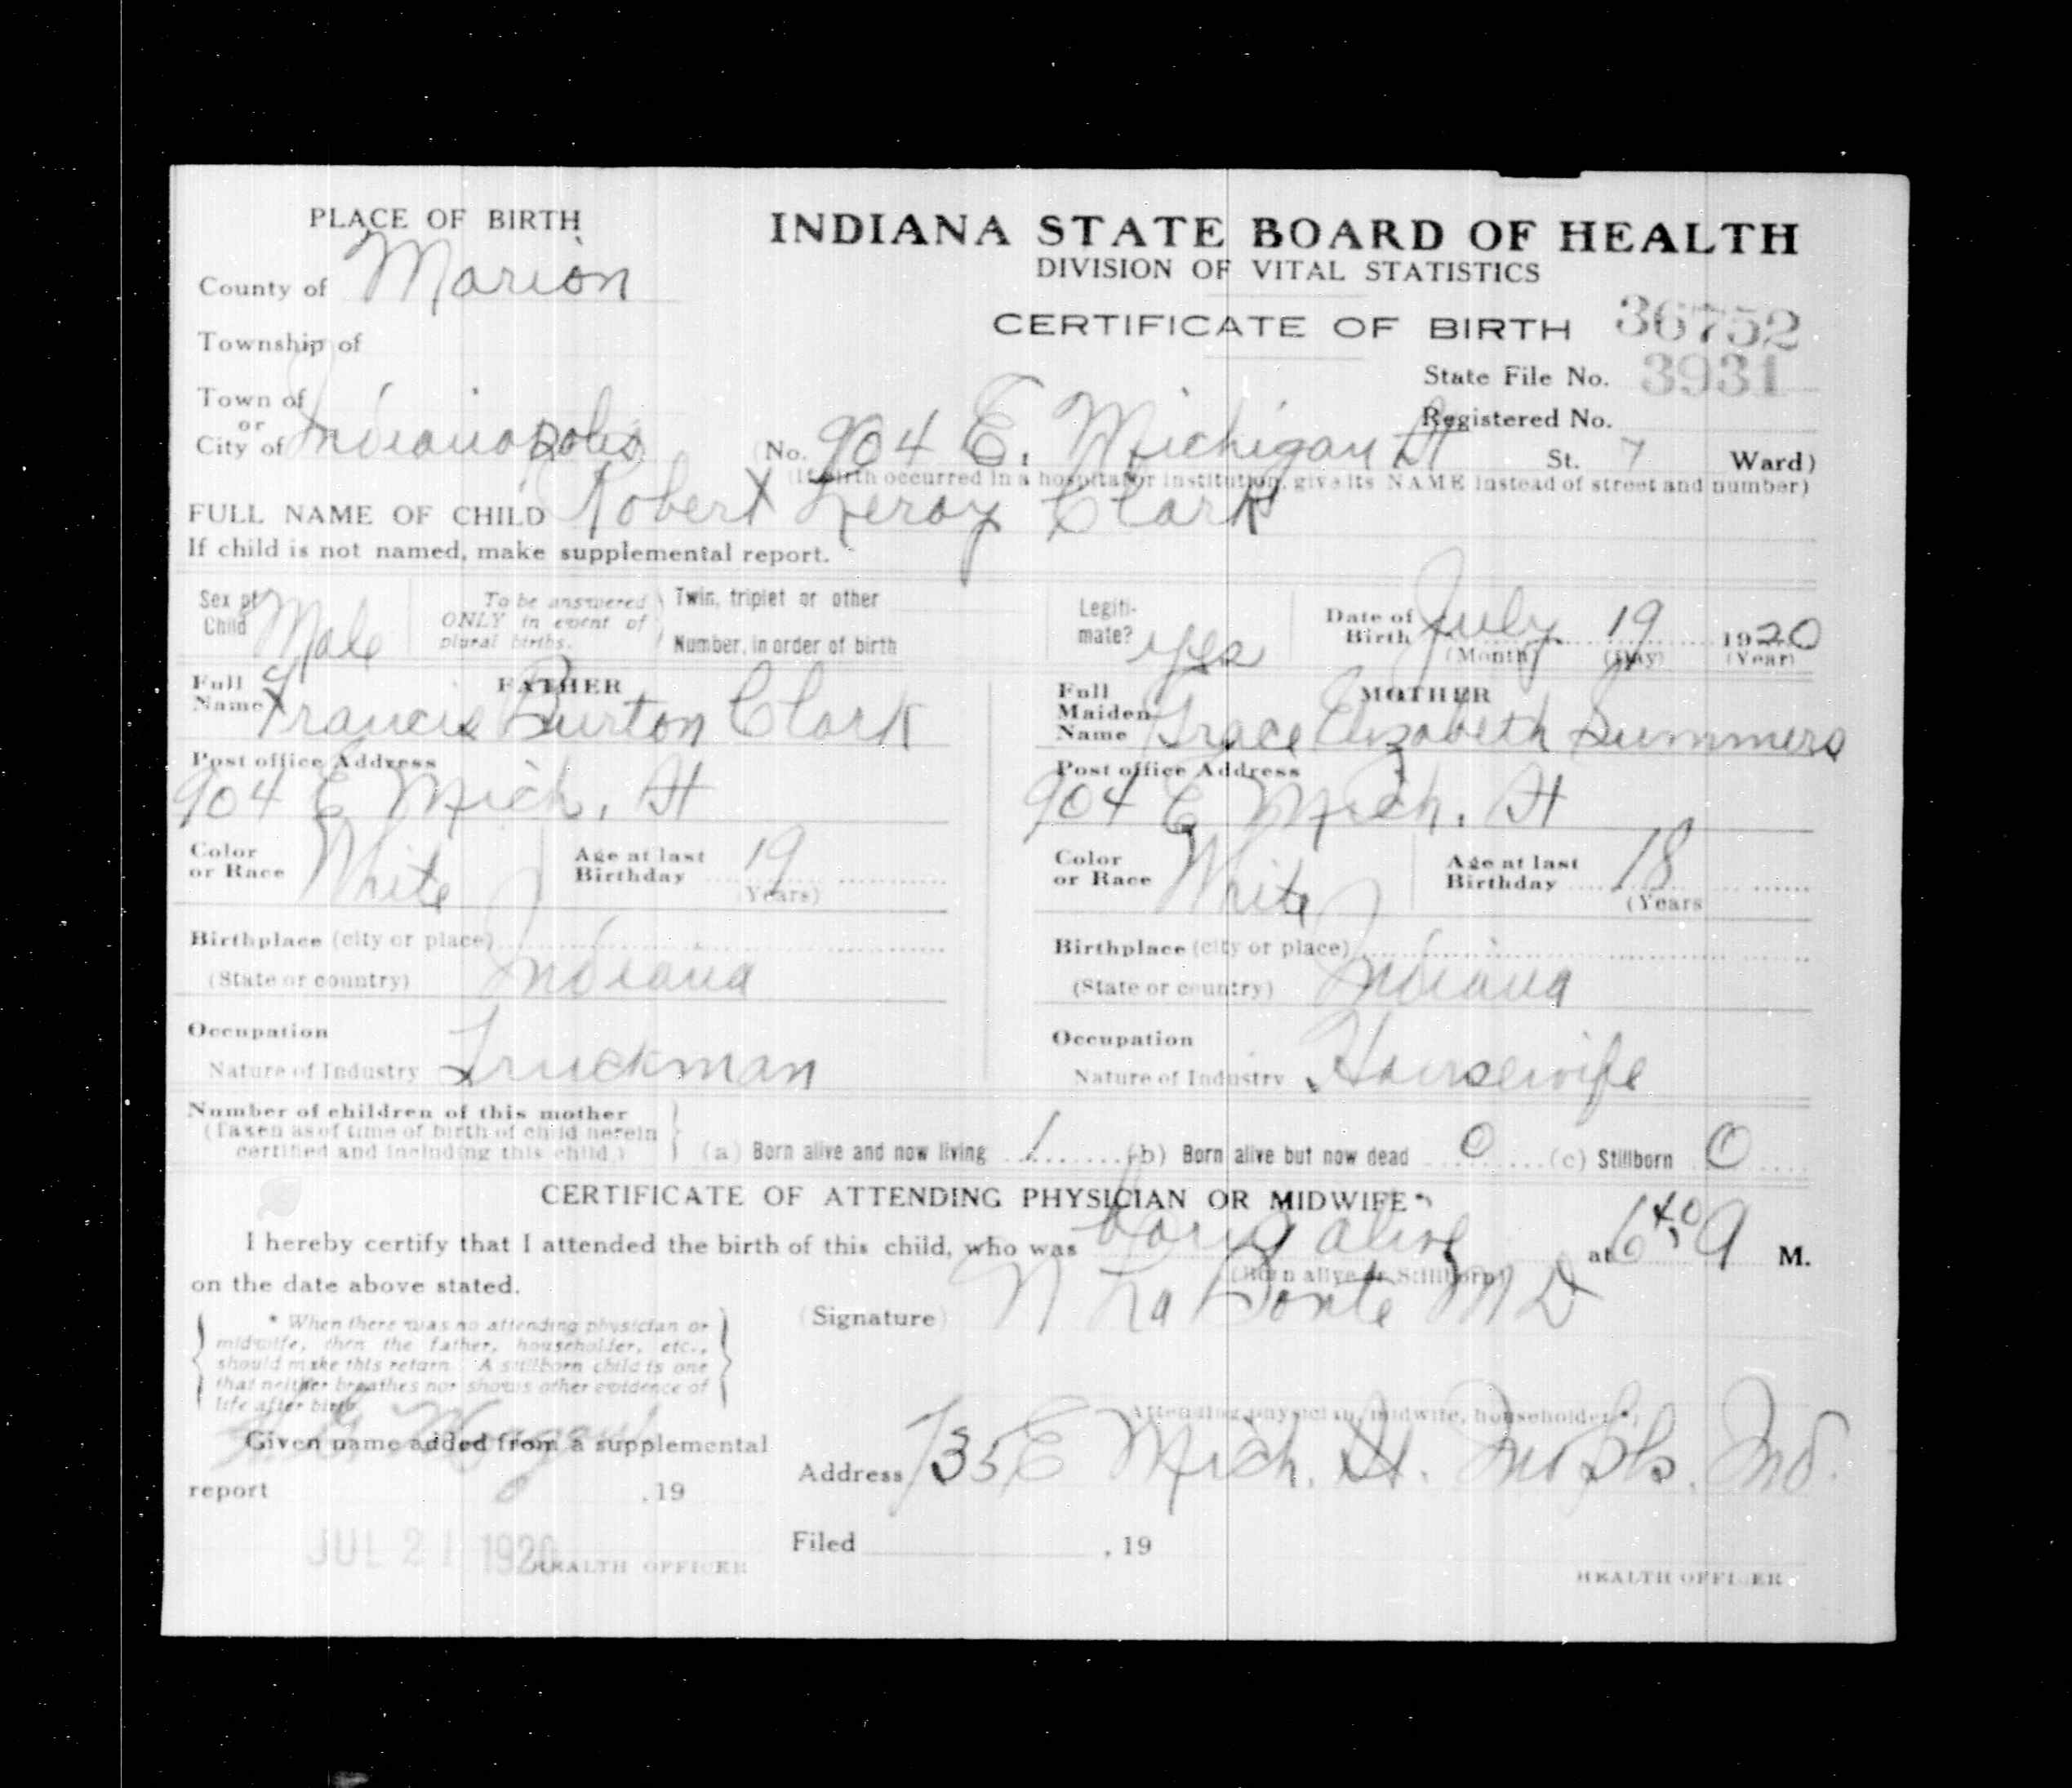 PLACE OF BIRTH
INDIANA STATE BOARD OF HEALTH
DIVISION OF VITAL STATISTICS
County of Marion
CERTIFICATE OF BIRTH 36752
Township of
State File No. 3931
Town of
or
City of Indianapolis
Registered No.
(No. 904 E. Michigan St St. 7 Ward)
(If birth occurred in a hospital or institution, give its NAME instead of street and number)
FULL NAME OF CHILD Robert Leroy Clark
If child is not named, make supplemental report.
Sex of Child Male
To be answered ONLY in event of plural births.
Twin, triplet or other
Number, in order of birth
Legiti-mate? Yes
Date of Birth July 19 1920
(Month) (Day) (Year)
FATHER
Full Name Francis Burton Clark
Post office Address
904 E Mich. St
Color or Race White
Age at last Birthday 19
(Years)
Birthplace (city or place)
(State or country) Indiana
Occupation
Nature of Industry Truckman
MOTHER
Full Maiden Name Grace Elizabeth Summers
Post office Address
904 E Mich. St
Color or Race White
Age at last Birthday 18
(Years
Birthplace (city or place)
(State or country) Indiana
Occupation
Nature of Industry Housewife
Number of children of this mother
(Taken as of time of birth of child herein
certified and including this child.)
(a) Born alive and now living 1 (b) Born alive but now dead 0 (c) Stillborn 0
CERTIFICATE OF ATTENDING PHYSICIAN OR MIDWIFE*
I hereby certify that I attended the birth of this child, who was born alive at 6 40 M.
(Born alive or Stillborn)
on the date above stated.
(Signature) N LaBonte MD
* When there was no attending physician or
midwife, then the father, householder, etc.,
should make this return. A stillborn child is one
that neither breathes nor shows other evidence of
life after birth.
(Attending physician, midwife, householder*)
Given name added from a supplemental
report , 19
Address 735 E Mich. St. Indpls. Ind.
JUL 21 1920
HEALTH OFFICER
Filed , 19
HEALTH OFFICER